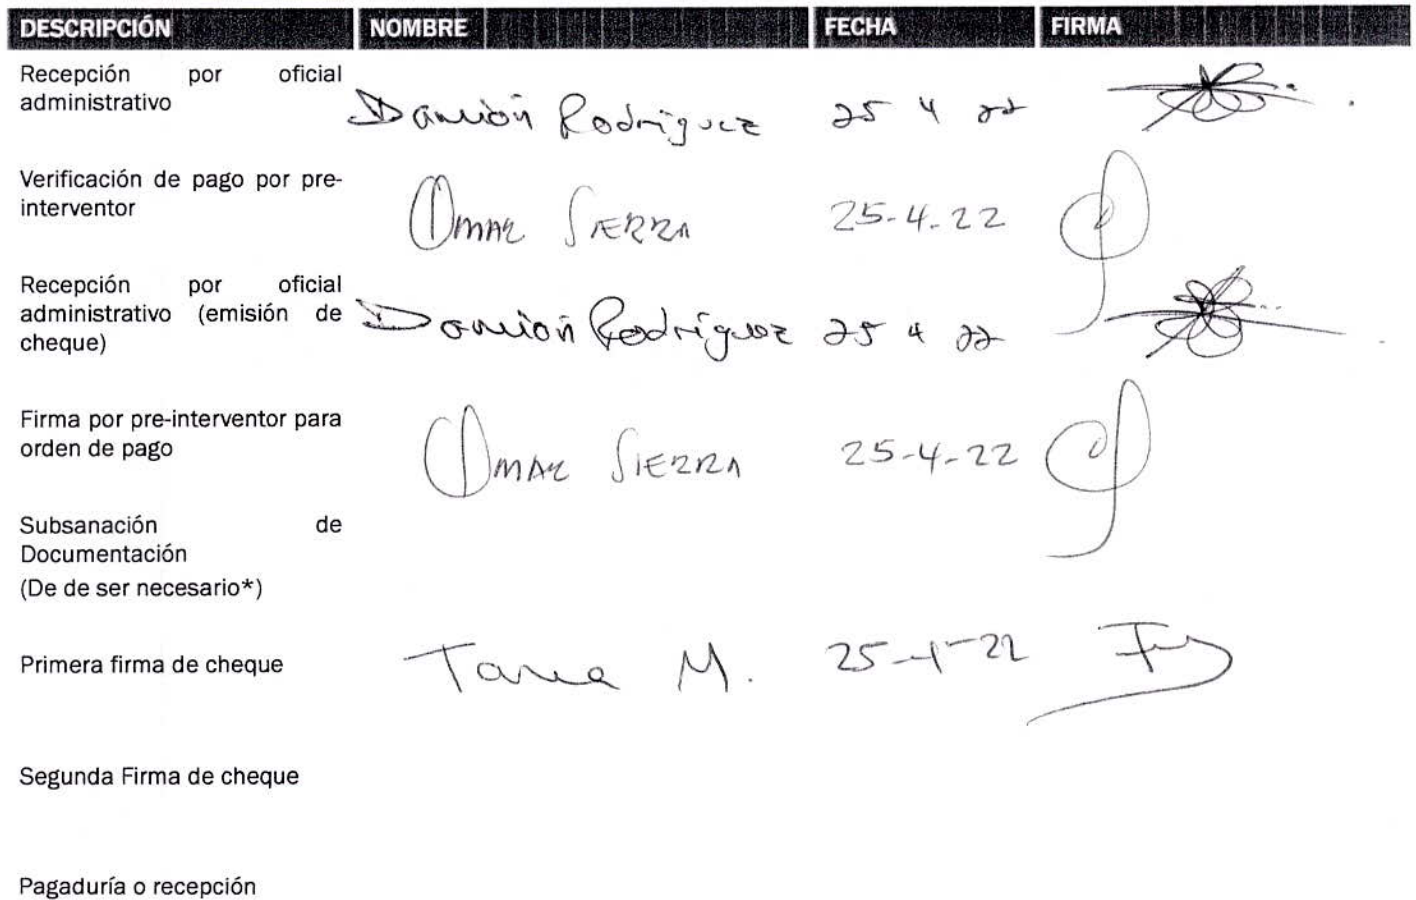 DESCRIPCIÓN NOMBRE FECHA FIRMA
Recepción por oficial
administrativo
Damión Rodríguez 25 4 22
Verificación de pago por pre-
interventor
OMAR SIERRA 25-4-22
Recepción por oficial
administrativo (emisión de
cheque)
Damión Rodríguez 25 4 22
Firma por pre-interventor para
orden de pago
OMAR SIERRA 25-4-22
Subsanación de
Documentación
(De de ser necesario*)
Primera firma de cheque
Tania M. 25-4-22
Segunda Firma de cheque
Pagaduría o recepción